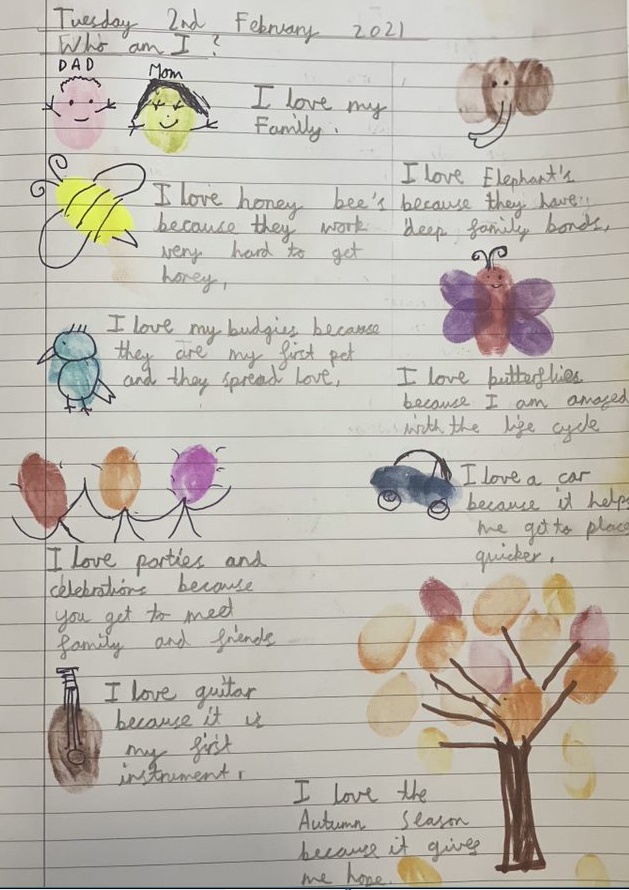 Tuesday 2nd February 2021
Who am I ?
DAD
Mom
I love my
Family.
I love Elephant's
because they have
deep family bonds.
I love honey bee's
because they work
very hard to get
honey,
I love my budgies because
they are my first pet
and they spread love,
I love butterflies
because I am amazed
with the life cycle
I love a car
because it helps
me get to place
quicker.
I love parties and
celebrations because
you get to meet
family and friends
I love guitar
because it is
my first
instrument.
I love the
Autumn Season
because it gives
me hope.